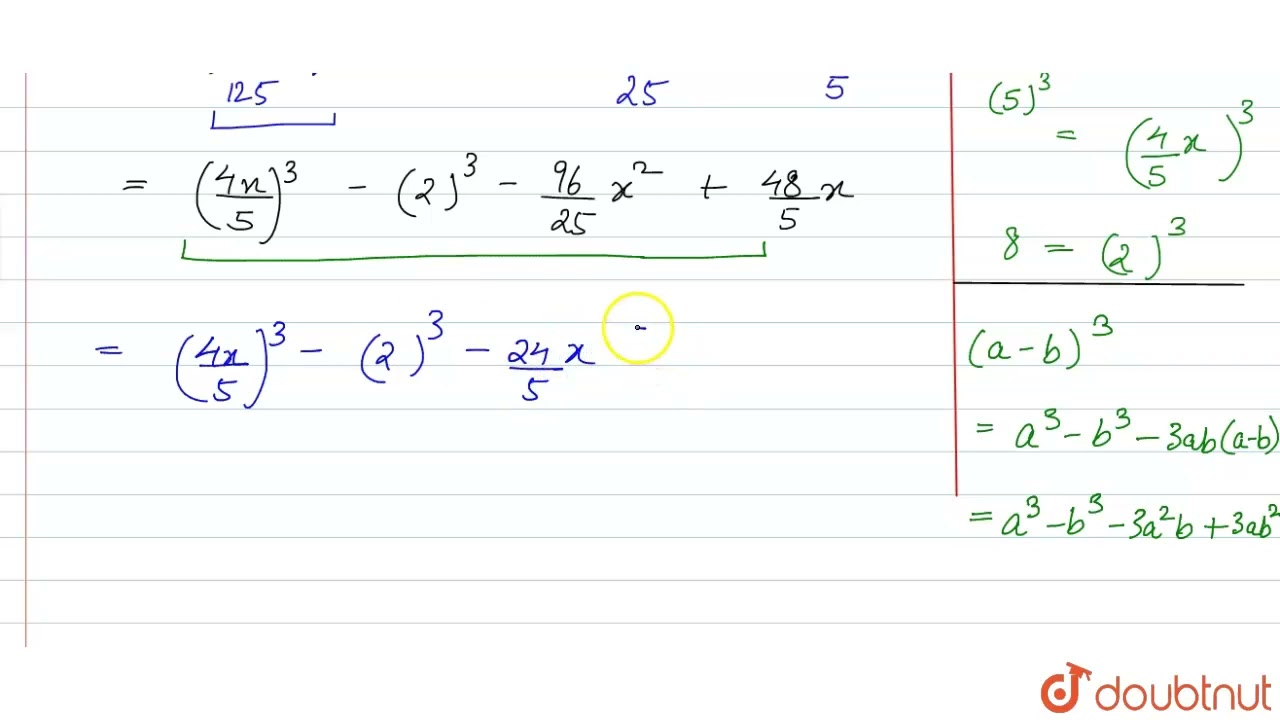 125 25 5
= (4x/5)³ - (2)³ - 96/25 x² + 48/5 x
= (4x/5)³ - (2)³ - 24/5 x
(5)³
= (4/5 x)³
8 = (2)³
(a-b)³
= a³-b³-3ab(a-b)
= a³-b³-3a²b+3ab²
doubtnut